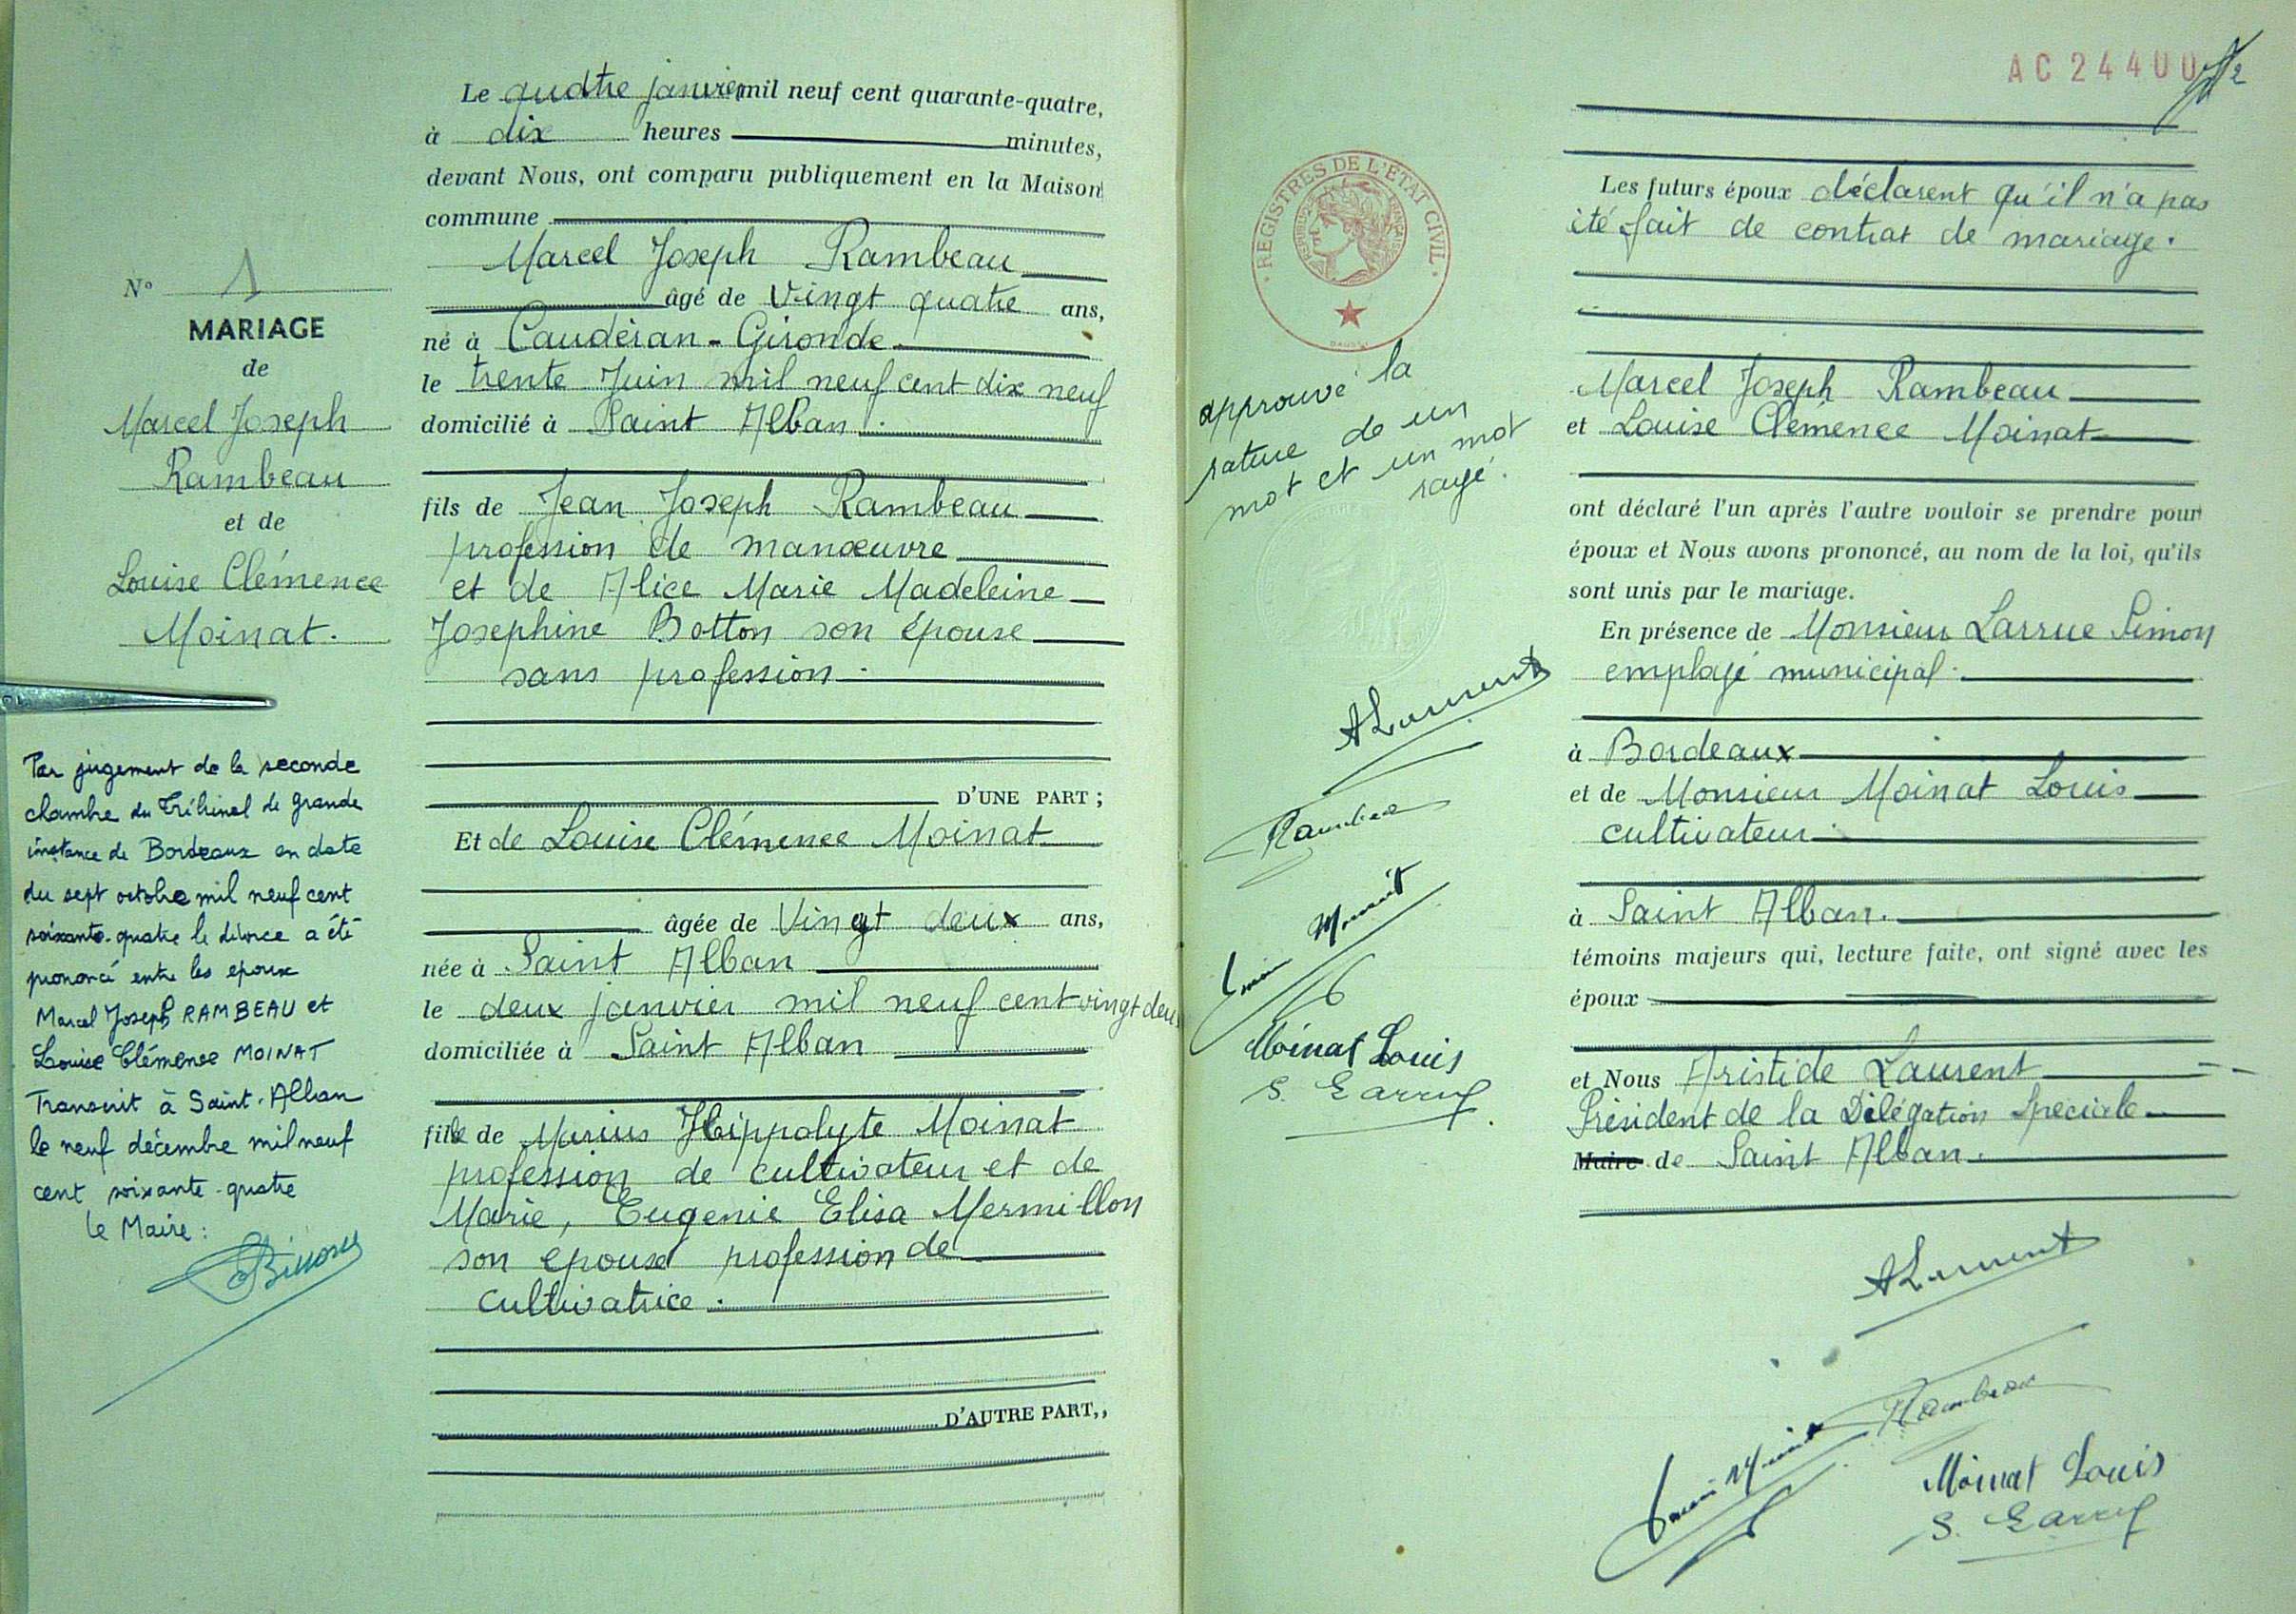 N° 1
MARIAGE
de
Marcel Joseph
Rambeau
et de
Louise Clémence
Moinat.
Par jugement de la seconde
chambre du Tribunal de grande
instance de Bordeaux en date
du sept octobre mil neuf cent
soixante-quatre le divorce a été
prononcé entre les epoux
Marcel Joseph RAMBEAU et
Louise Clémence MOINAT
Transcrit à Saint-Alban
le neuf décembre mil neuf
cent soixante-quatre
le Maire :
Le quatre janvier mil neuf cent quarante-quatre,
à dix heures minutes,
devant Nous, ont comparu publiquement en la Maison
commune
Marcel Joseph Rambeau
âgé de Vingt quatre ans,
né à Caudéran - Gironde
le trente Juin mil neuf cent dix neuf
domicilié à Saint Alban.
fils de Jean Joseph Rambeau
profession de manœuvre
et de Alice Marie Madeleine
Josephine Botton son épouse
sans profession.
D'UNE PART ;
Et de Louise Clémence Moinat
âgée de Vingt deux ans,
née à Saint Alban
le deux janvier mil neuf cent vingt deux
domiciliée à Saint Alban
fille de Marius Hippolyte Moinat
profession de cultivateur et de
Marie, Eugenie Elisa Mermillon
son epouse profession de
cultivatrice.
D'AUTRE PART,,
REGISTRES DE L'ÉTAT CIVIL
approuvé la
rature de un
mot et un mot
rayé.
ALaurent
Rambeau
Moinat Louis
S. Larrue
AC 24400
Les futurs époux déclarent qu'il n'a pas
été fait de contrat de mariage.
Marcel Joseph Rambeau
et Louise Clémence Moinat
ont déclaré l'un après l'autre vouloir se prendre pour
époux et Nous avons prononcé, au nom de la loi, qu'ils
sont unis par le mariage.
En présence de Monsieur Larrue Simon
employé municipal.
à Bordeaux
et de Monsieur Moinat Louis
cultivateur.
à Saint Alban.
témoins majeurs qui, lecture faite, ont signé avec les
époux
et Nous Aristide Laurent
Président de la Délégation Speciale
Maire de Saint Alban.
ALaurent
Rambeau
Moinat Louis
S. Larrue